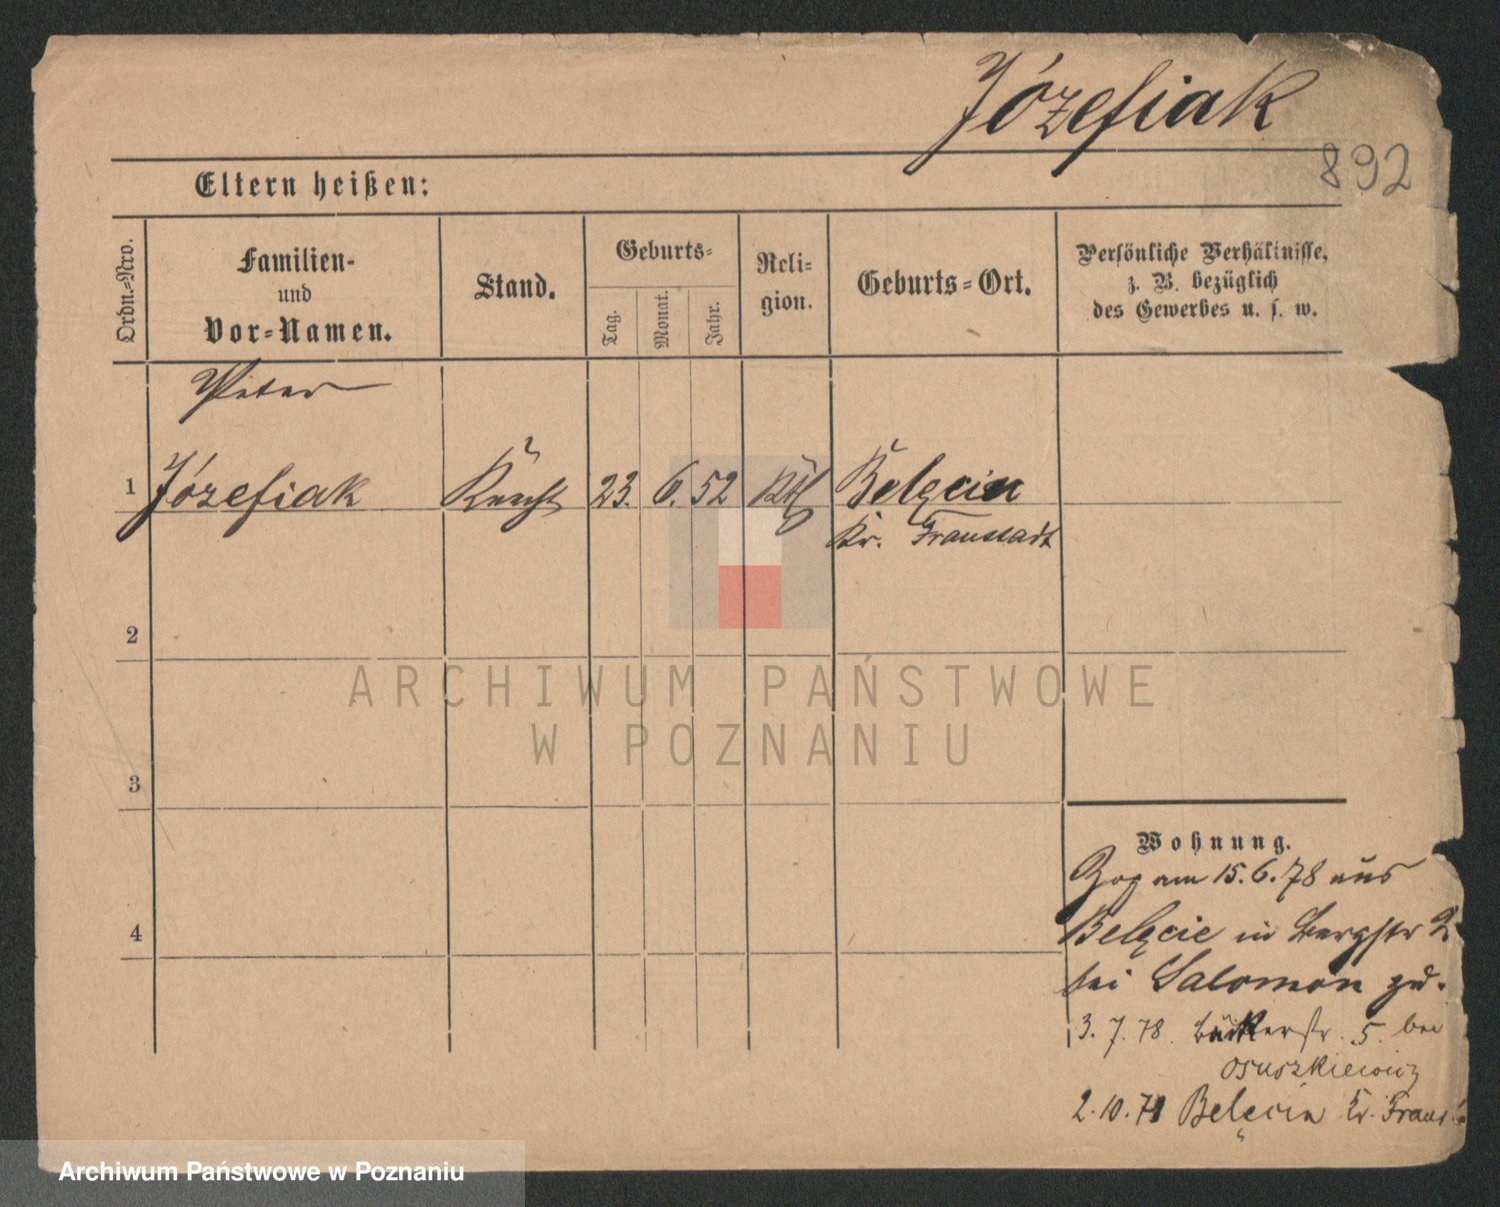 Józefiak
892
Eltern heißen:
Ordn.-Nro.
Familien-
und
Vor-Namen.
Stand.
Geburts-
Tag.
Monat.
Jahr.
Reli-
gion.
Geburts-Ort.
Persönliche Verhältnisse,
z. B. bezüglich
des Gewerbes u. s. w.
Peter
1 Józefiak Knecht 23. 6. 52 Kth Belęcin
Kr. Fraustadt
2
3
4
Wohnung.
Zog am 15.6.78 aus
Belęcie in Bergstr 2
bei Salomon zu.
3.7.78 Bäckerstr. 5. bei
Osuszkiewicz
2.10.78 Belęcin Kr. Fraust.
ARCHIWUM PAŃSTWOWE
W POZNANIU
Archiwum Państwowe w Poznaniu